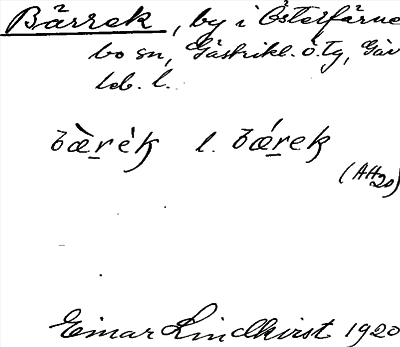 Bärrek, by i Österfärne
bo sn, Gästrikl. ö. tg, Gäv
leb. l.
bæ̀rèk l. bǽrek
(AH 20)
Einar Lindkvist 1920